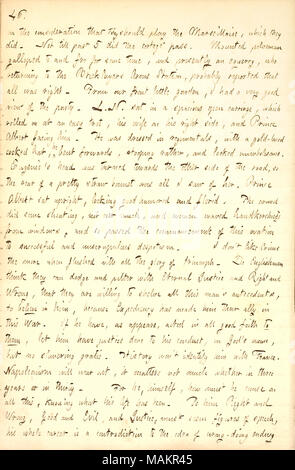 46.
in the consideration that they should play the Marseillaise, which they
did. Not till past 5 did the cortege pass. Mounted policemen
galloped to and fro for some time, and presently an equerry, who
returning to the Bricklayers Arms Station, probably reported that
all was right. From our front little garden, I had a very good
view of the party. L. N. sat in a spacious open carriage, which
rolled on at an easy trot, his wife on his right side, and Prince
Albert facing him. He was dressed in regimentals, with a gold-laced
cocked hat, bent forwards, stooping rather, and looked unwholesome.
Eugenie's head was turned towards the other side of the road, so
the rear of a pretty straw bonnet was all I saw of her, Prince
Albert sat upright, looking good humored and florid. The crowd
did some shouting, not over much, and women waved handkerchiefs
from windows, and so passed the announcement of their ovation
to successful and unscrupulous despotism. I don't like Crime
the more when flushed with all the glory of triumph. Do Englishmen
think they can dodge and palter with Eternal Justice and Right and
Wrong, that they are willing to swallow all this man's antecedents,
to believe in him, because Expediency has made him their ally in
this War. If he have, as appears, acted in all good faith to
them, let them have justice done to his conduct, in God's name,
but no slavering praise. History won't identify him with France.
Napoleonism will wear out, it matters not much whether in three
years or in thirty. For he, himself, how must he curse at
all this, knowing what his life has been. To him Right and
Wrong, Good and Evil, and Justice, must seem figures of speech,
his whole career is a contradiction to the idea of wrong-doing ending
alamy
Image ID: MAKR45
www.alamy.com